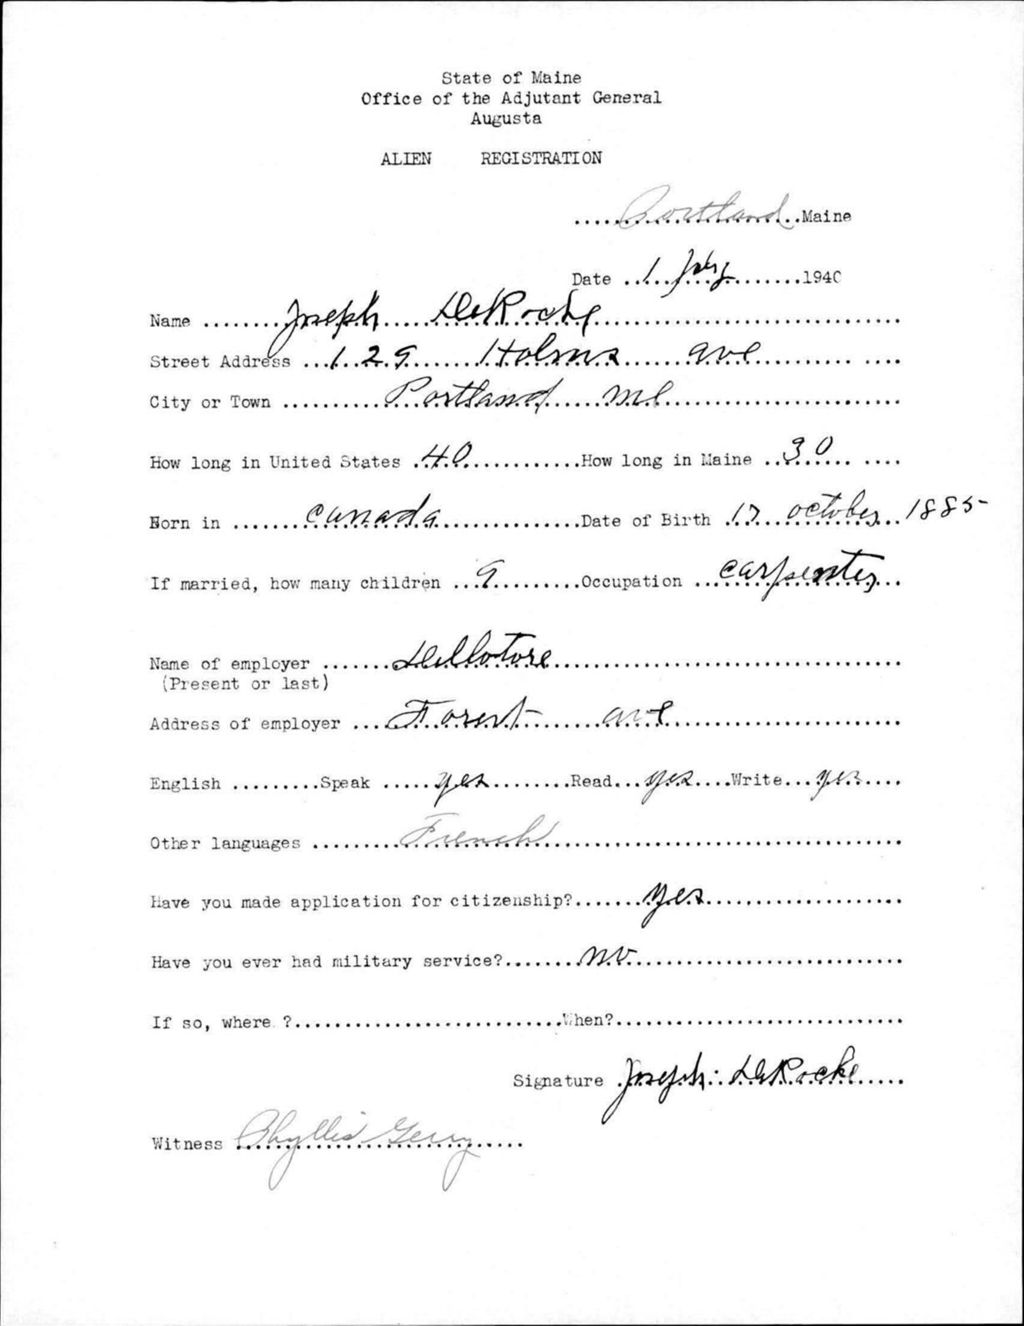 State of Maine
Office of the Adjutant General
Augusta
ALIEN REGISTRATION
Portland Maine
Date 1 July 1940
Name Joseph DeRoche
Street Address 129 Holms ave
City or Town Portland Me
How long in United States 40 How long in Maine 30
Born in Canada Date of Birth 17 october 1885
If married, how many children 9 Occupation carpenter
Name of employer
(Present or last)
Address of employer Forest ave
English Speak yes Read yes Write yes
Other languages French
Have you made application for citizenship? yes
Have you ever had military service? no
If so, where ? When?
Signature Joseph: DeRoche
Witness Phyllis Gerry